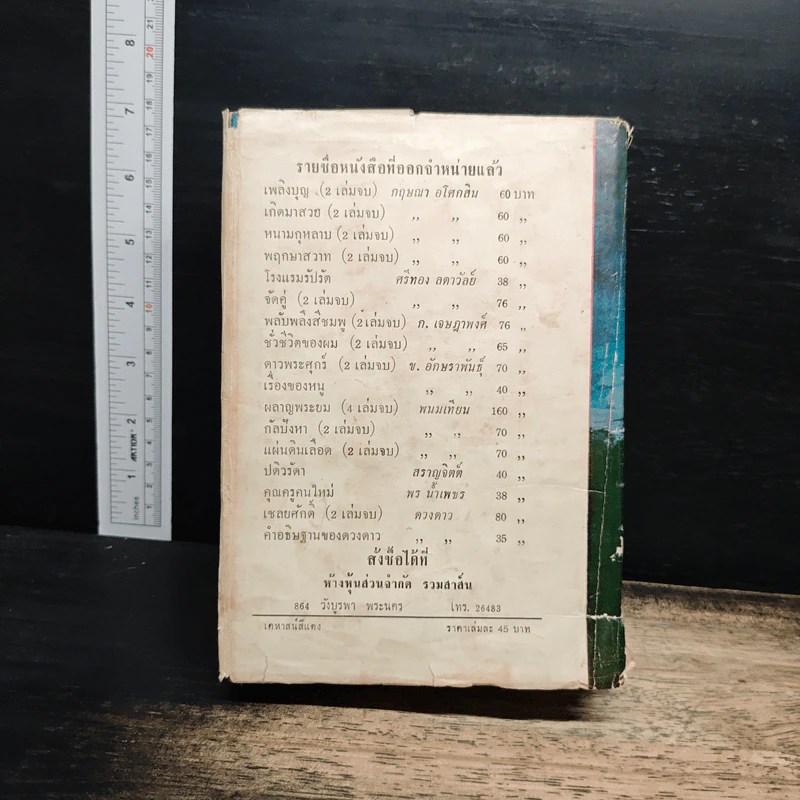 รายชื่อหนังสือที่ออกจำหน่ายแล้ว
เพลิงบุญ (2 เล่มจบ) กฤษณา อโศกสิน 60 บาท
เกิดมาสวย (2 เล่มจบ) ,, ,, 60 ,,
หนามกุหลาบ (2 เล่มจบ) ,, ,, 60 ,,
พฤกษาสวาท (2 เล่มจบ) ,, ,, 60 ,,
โรงแรมรัปรัต ศรีทอง ลดาวัลย์ 38 ,,
จัดคู่ (2 เล่มจบ) ,, ,, 76 ,,
พลับพลึงสีชมพู (2 เล่มจบ) ก. เจษฎาพงศ์ 76 ,,
ชั่วชีวิตของผม (2 เล่มจบ) ,, ,, 65 ,,
ดาวพระศุกร์ (2 เล่มจบ) ข. อักษราพันธุ์ 70 ,,
เรื่องของหนู ,, ,, 40 ,,
ผลาญพระยม (4 เล่มจบ) พนมเทียน 160 ,,
กัลปังหา (2 เล่มจบ) ,, ,, 70 ,,
แผ่นดินเลือด (2 เล่มจบ) ,, ,, 70 ,,
ปดิวรัดา สราญจิตต์ 40 ,,
คุณครูคนใหม่ พร น้ำเพชร 38 ,,
เชลยศักดิ์ (2 เล่มจบ) ดวงดาว 80 ,,
คำอธิษฐานของดวงดาว ,, ,, 35 ,,
สั่งซื้อได้ที่
ห้างหุ้นส่วนจำกัด รวมสาส์น
864 วังบูรพา พระนคร โทร. 26483
เคหาสน์สีแดง ราคาเล่มละ 45 บาท
8
7
6
5
4
3
2
1
Inches
21
20
19
18
17
16
15
14
13
12
11
10
9
8
7
6
5
4
3
2
1